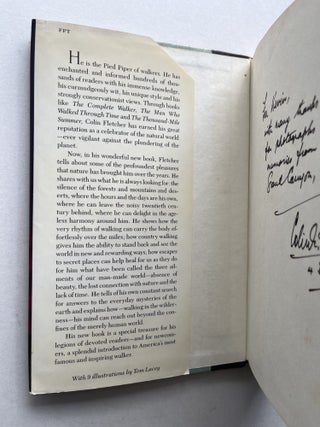 FPT
He is the Pied Piper of walkers. He has
enchanted and informed hundreds of thou-
sands of readers with his immense knowledge,
his curmudgeonly wit, his unique style and his
strongly conservationist views. Through books
like The Complete Walker, The Man Who
Walked Through Time and The Thousand-Mile
Summer, Colin Fletcher has earned his great
reputation as a celebrator of the natural world
—ever vigilant against the plundering of the
planet.
Now, in his wonderful new book, Fletcher
tells about some of the profoundest pleasures
that nature has brought him over the years. He
shares with us what he is always looking for: the
silence of the forests and mountains and des-
erts, where the hours and the days are his own,
where he can leave the noisy twentieth cen-
tury behind, where he can delight in the age-
less harmony around him. He shows how the
very rhythm of walking can carry the body ef-
fortlessly over the miles; how country walking
gives him the ability to stand back and see the
world in new and rewarding ways, how escapes
to secret places can help heal for us as they do
for him what have been called the three ail-
ments of our man-made world—absence of
beauty, the lost connection with nature and the
lack of time. He tells of his own constant search
for answers to the everyday mysteries of the
earth and explains how—walking in the wilder-
ness—his mind can reach out beyond the con-
fines of the merely human world.
His new book is a special treasure for his
legions of devoted readers—and for newcom-
ers, a splendid introduction to America's most
famous and inspiring walker.
With 9 illustrations by Tom Lacey
To Kevin,
with many thanks
for photographs
memories from
Colin